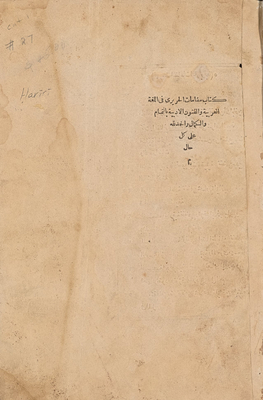 # 27
Hariri
كتاب مقامات الحريرى فى اللغة
العربية والفنون الادبية بالتمام
والكمال والحمد لله
على كل
حال
م